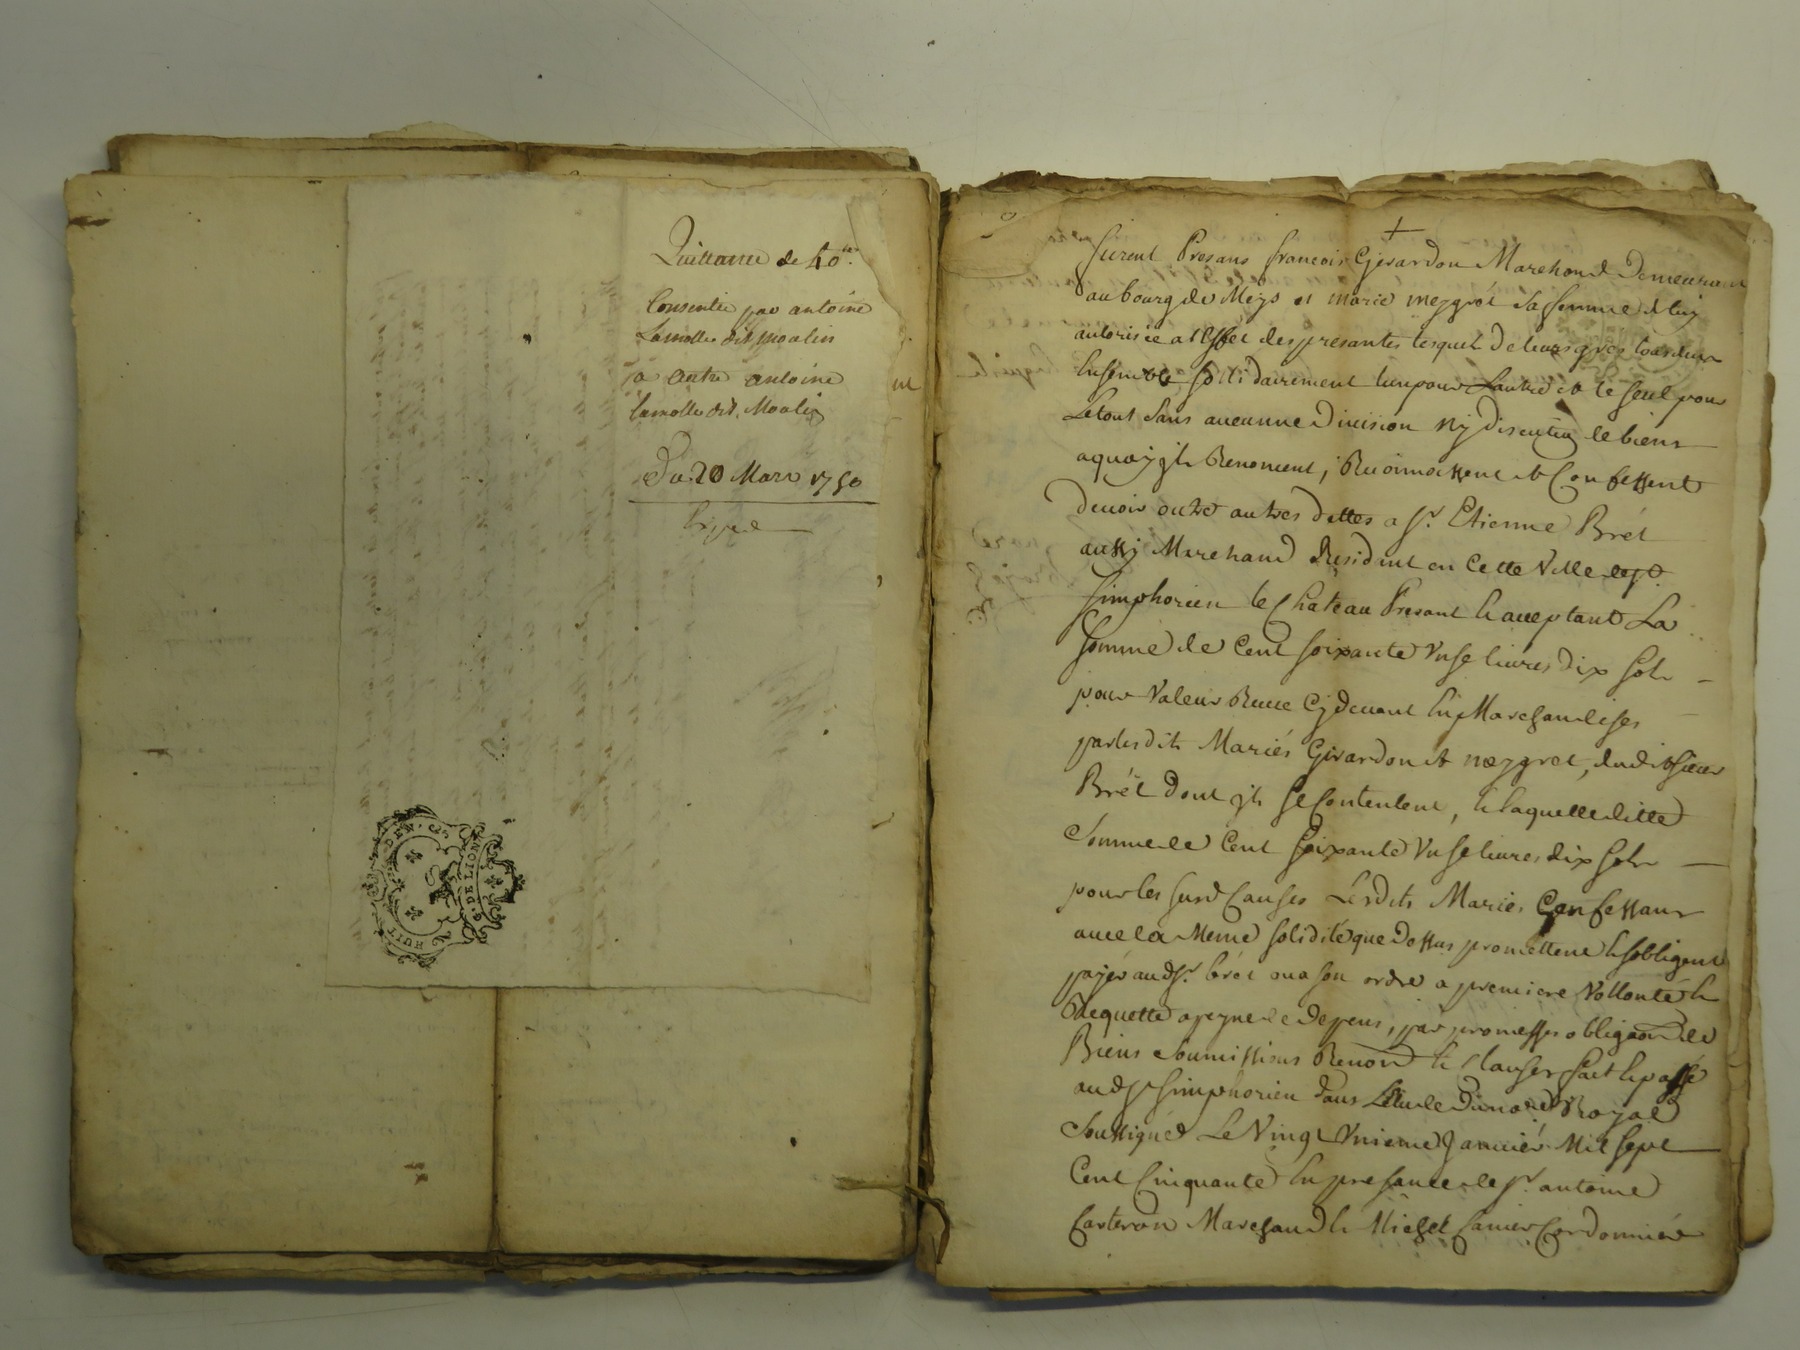 Quittance de 40ᵗᵗ
Consentie par antoine
Lamolle dit Moulin
a autre antoine
lamolle dit Moulin
Du 20 Mars 1750
GEN. DE LION
HUIT D.
furent Presans francois Girardon Marchand Demeurant
au bourg de Meys et marie meygrét sa femme de luy
autorisée a l'effet des presantes lesquels de leurs grés tous deux
Ensemble sollidairement lun pour Lautre et le seul pour
Le tout sans aucunne Division ny discution de biens
a quoy ils Renoncent, Reconnoissent et Confessent
devoir outre autres dettes a Sʳ. Etienne Brét
aussy Marchand Residant en Cette Ville de Sᵗ.
Simphorien le Chateau Presant & acceptant La
somme de Cent soixante Unse livres dix sols
pour Valeur Reçue Cydevant En Marchandises
par lesdits Mariés Girardon et neygret, dudit sieur
Brét Dont ils se Contentent, & laquelle ditte
Somme de Cent soixante Unse livres dix sols
pour les susd Causes Lesdits Mariés Confessans
avec la Meme solidité que Dessus promettent & sobligent
payér aud Sʳ. brét ou a son ordre a premiere Vollonté &
Requette a peyne de Depens, par promesses obligaon de
Biens Soumissions Renon & Clauses fait & passé
aud Sᵗ Simphorien dans Létude du noʳᵉ Royal
Soussigné Le Vingt Unieme Janviér Mil sept
Cent Cinquante En presance de Sʳ. antoine
Carteron Marchand & Michel Cordonniér